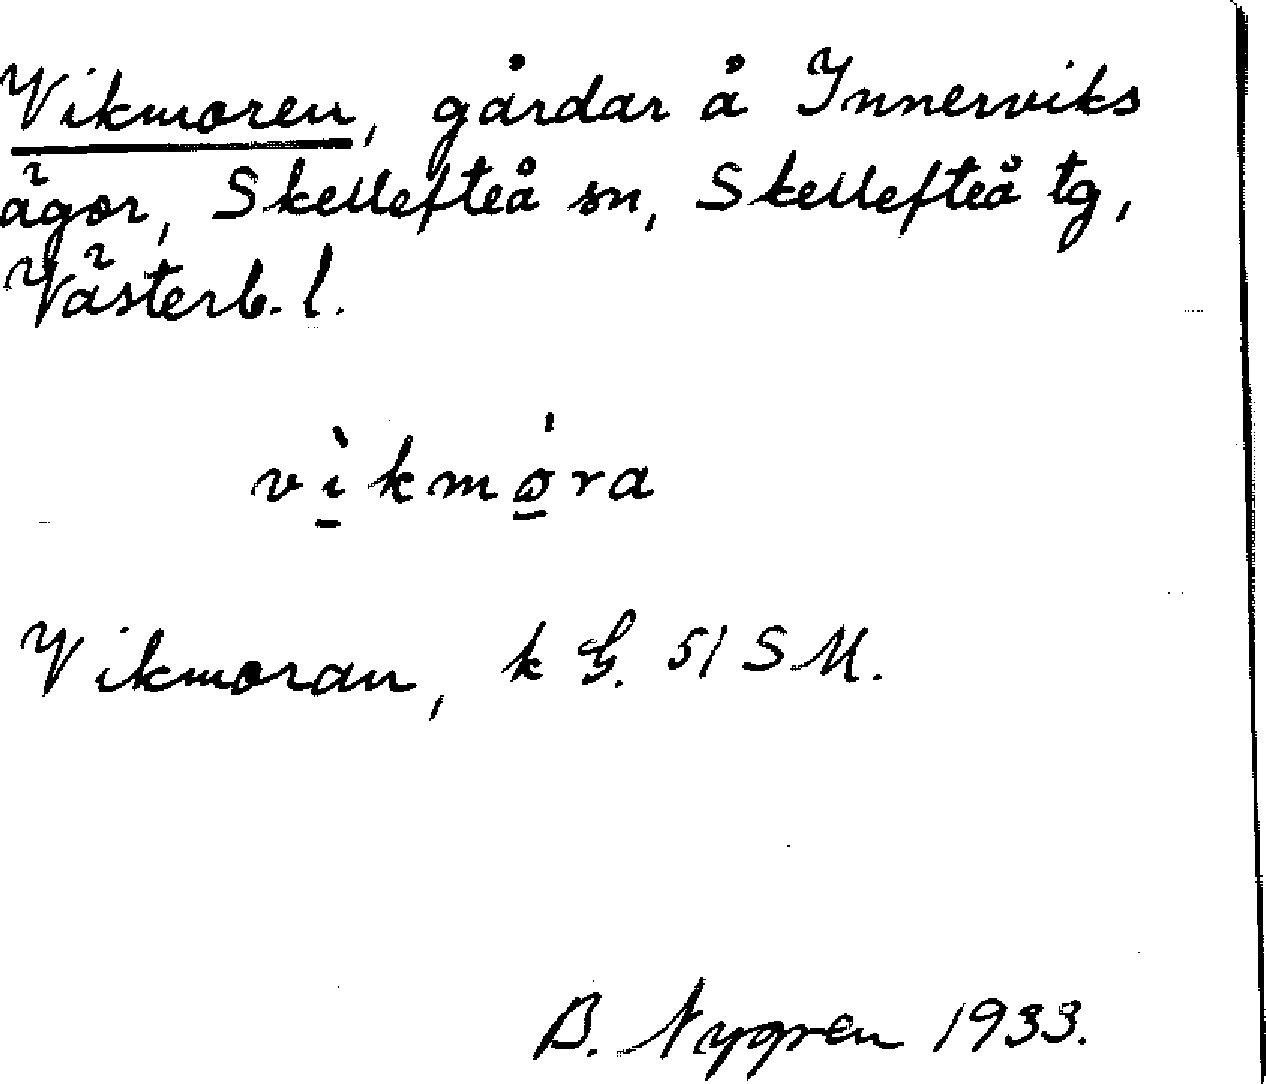 Vikmoren, gårdar å Innerviks
ägor, Skellefteå sn, Skellefteå tg,
Västerb. l.
vìkmóra
Vikmoran, k G. 51 SM.
B. Nygren 1933.